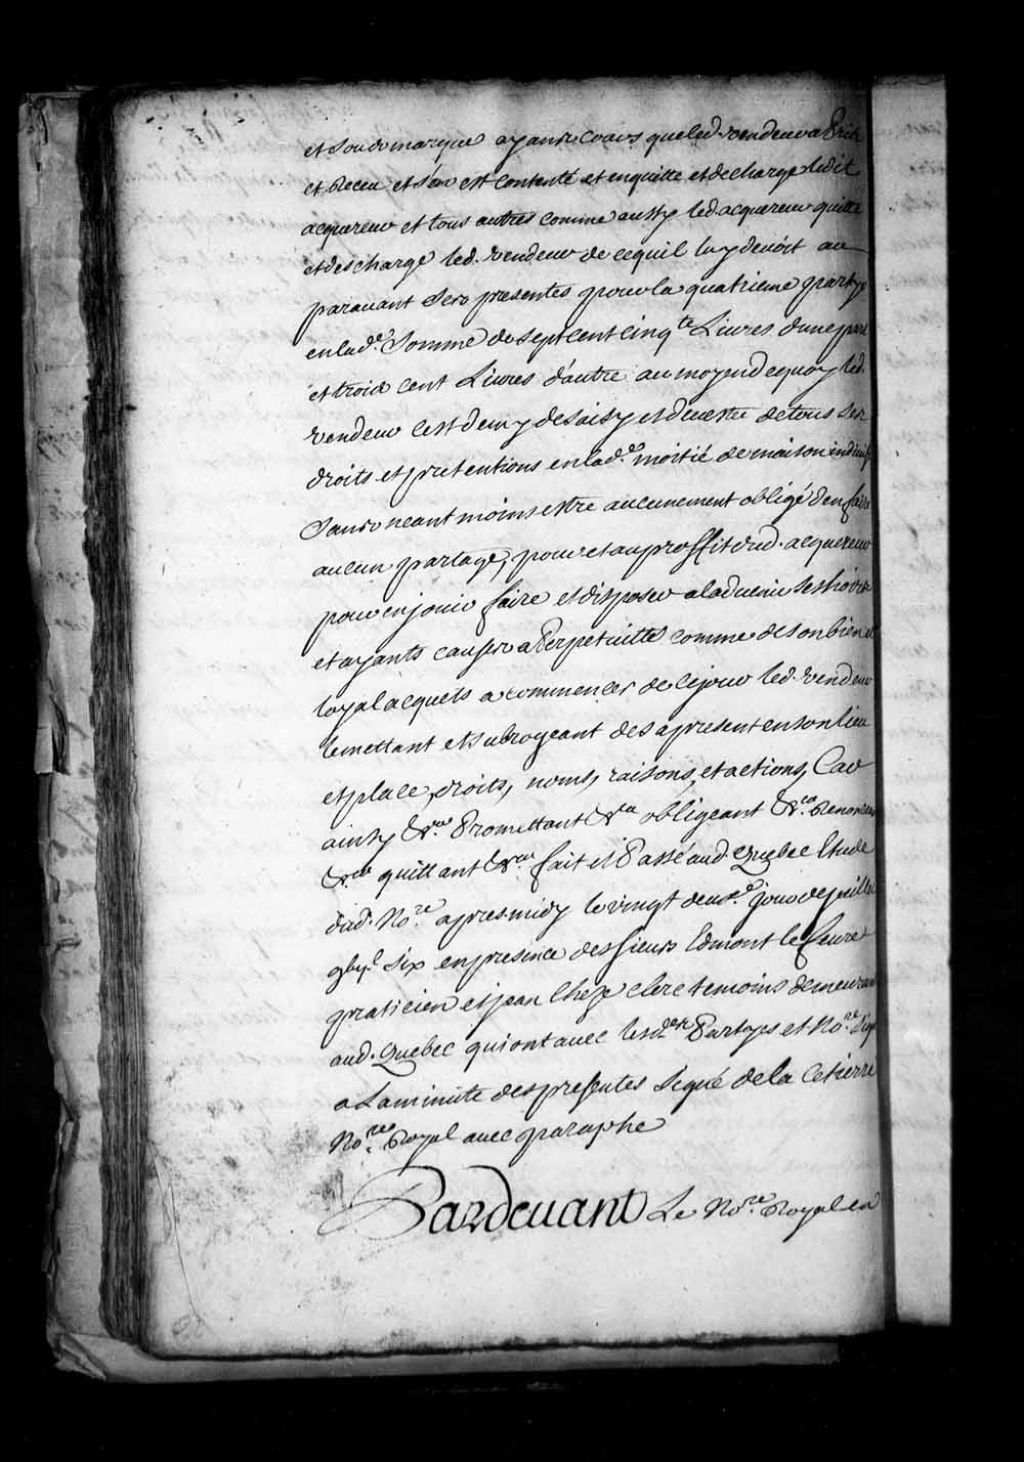 et sou de marque ayant cours que led. vendeur a Pris
et Receu et s'en est contenté et en quitte et decharge ledit
acquereur et tous autres comme aussy led acquereur quitte
et descharge led. vendeur de ce quil luy devoit au
paravant Ses presentes pour la quatrieme partye
en lad.e Somme de Sept cent cinq.te Livres dune part
et trois cent Livres d'autre au moyen de quoy led.
vendeur c'est demy desaisy et devestu de tous ses
droits et pretentions en lad.e moitié de maison indivise
Sans neantmoins estre aucunement obligé den faire
aucun partage, pour et au proffit dud. acquereur
pour en jouir faire et disposer a ladvenir ses hoirs
et ayants cause a Perpetuitté comme de son bien et
loyal acquets a commencer de ce jour led. vendeur
le mettant et subrogeant des a present en son lieu
et place, droits, noms, raisons, et actions, Car
ainsy &.ra Promettant &.ra obligeant &.ra Renonceant
&.ra quittant &.ra fait et Passé aud. Quebec Etude
dud. No.re apres midy le vingt deux.e jour de juillet
gby.c six en presence des sieurs Edmont le feure
praticien et jean Cheze clerc temoins demeurant
aud. Quebec qui ont avec lesd.es Partyes et No.re Sig
a la minute des presentes Signé de la Cetierre
No.re Royal avec paraphe
Pardevant Le No.re Royal en